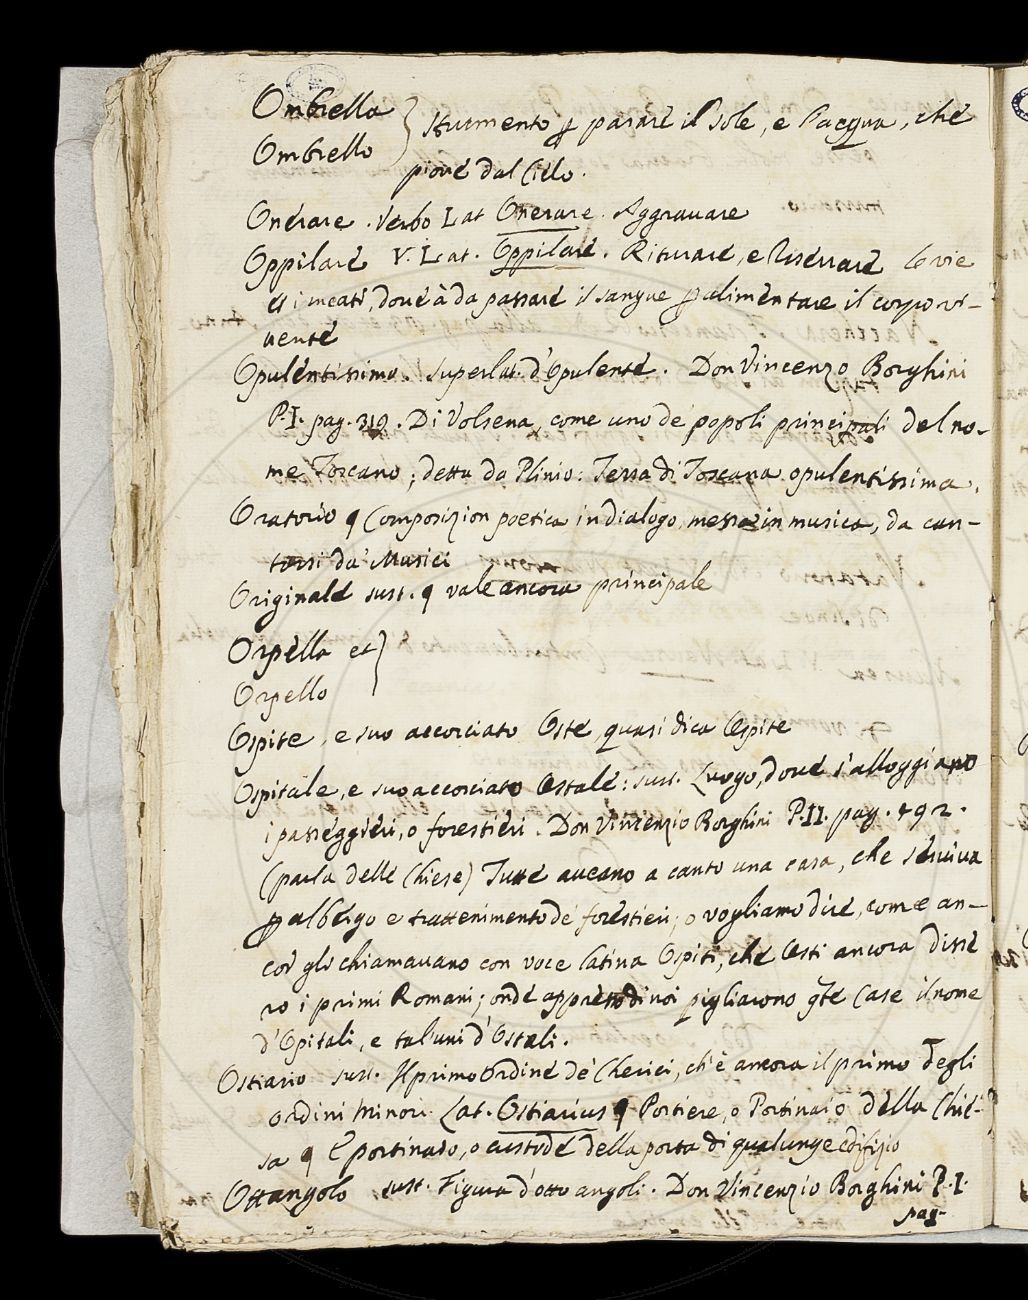 Ombrella
Ombrello } Sturmento p parare il Sole, e l'acqua, che
piove dal Cielo.
Onerare. Verbo Lat Onerare. Aggravare
Oppilare V. Lat. Oppilare. Riturare, e riserrare le vie
et i meati, dove à da passare il sangue p alimentare il corpo vi-
vente
Opulentissimo. superlat. d'Opulente. Don Vincenzo Borghini
P. I. pag. 319. Di Volsena, come uno de' popoli principali del no-
me Toscano; detta da Plinio: Terra di Toscana opulentissima.
Oratorio ¶ Composizion poetica in dialogo, messa in musica, da can-
tarsi da' Musici
Originale sust. ¶ vale ancora principale
Orpella et }
Orpello
Ospite, e suo accorciato Oste, quasi dica Ospite
Ospitale, e suo accorciato Ostale: sust. Luogo, dove s'alloggiano
i passeggieri, o forestieri. Don Vincenzio Borghini P. II. pag. 492.
(parla delle Chiese) Tutte aveano a canto una casa, che serviva
p albergo e trattenimento de' forestieri; o vogliamo dire, come an-
cor gli chiamavano con voce latina Ospiti, che Osti ancora disse
ro i primi Romani; onde appresso di noi pigliarono qte Case il nome
d'Spitali, e tal'uni d'Ostali.
Ostiario sust. Il primo Ordine de' Cherici, ch'è ancora il primo degli
ordini minori. Lat. Ostiarius ¶ Portiere, o Portinaio della Chie-
sa ¶ E portinaio, o custode della porta di qualunqe edifizio
Ottangolo sust. Figura d'otto angoli. Don Vincenzio Borghini P. I.
pag-